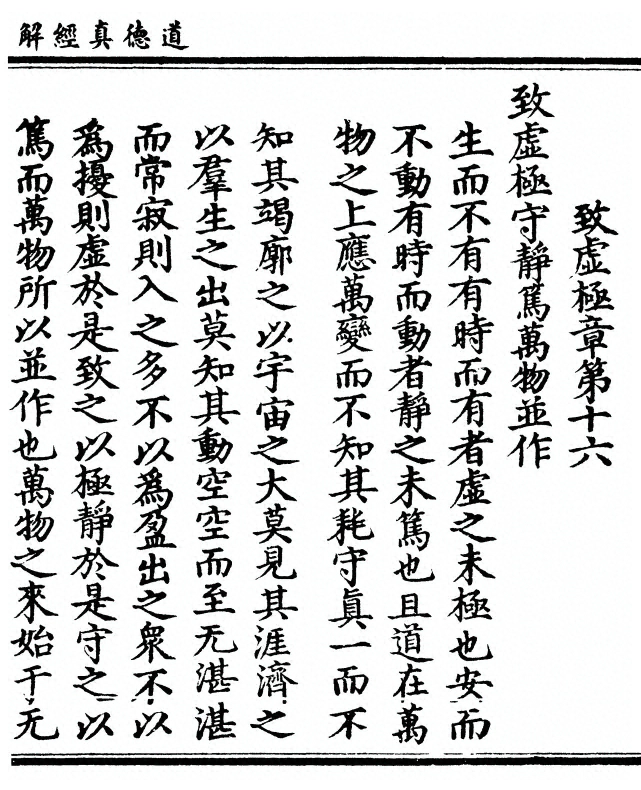 道德真經解
致虛極章第十六
致虛極守靜篤萬物並作
生而不有有時而有者虛之未極也安而
不動有時而動者靜之未篤也且道在萬
物之上應萬變而不知其耗守真一而不
知其竭廓之以宇宙之大莫見其涯濟之
以羣生之出莫知其動空空而至无湛湛
而常寂則入之多不以為盈出之衆不以
為擾則虛於是致之以極靜於是守之以
篤而萬物所以並作也萬物之來始于无